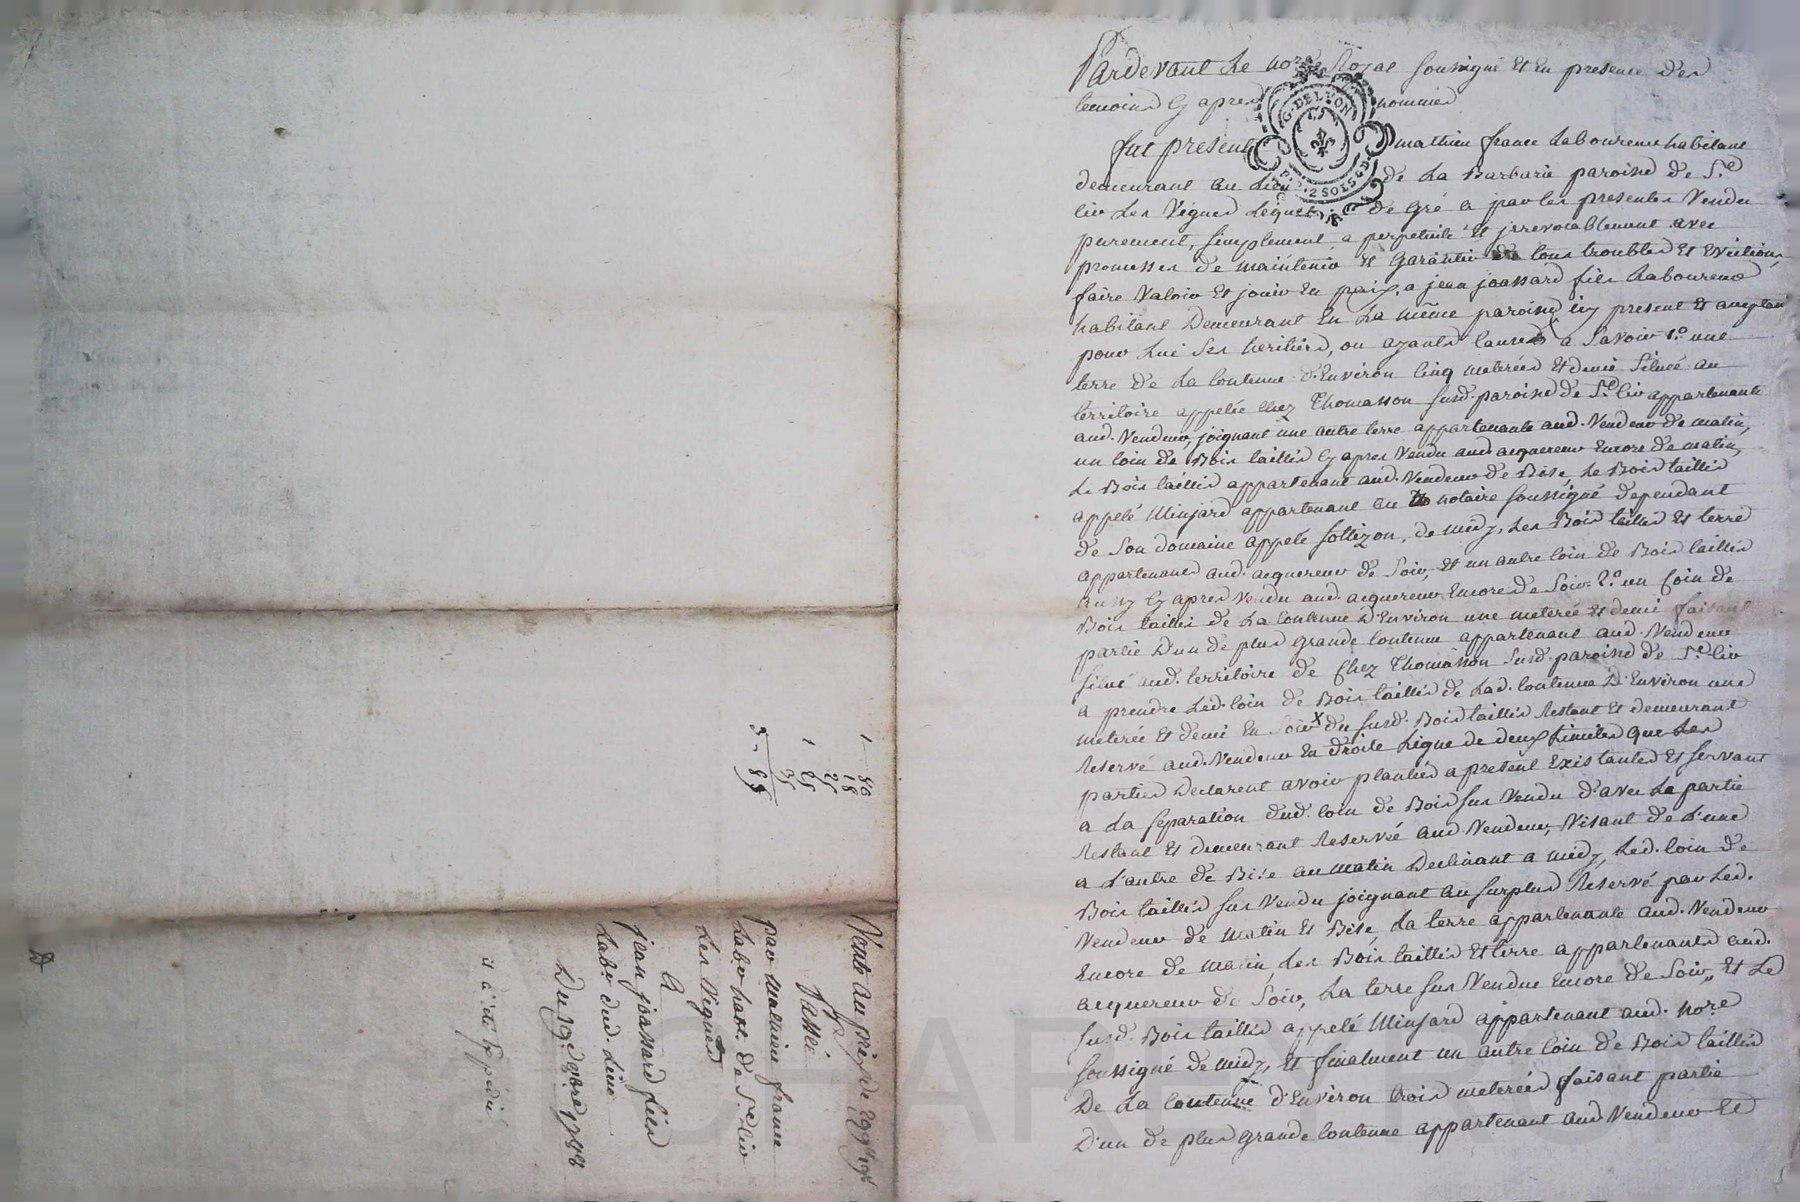 Pardevant Le nore Royal soussigné Et En presence des
temoins Cy apres nommés
G. DE LYON
P.P. 2 SOLS 4 D
fut present mathieu france Laboureur habitant
demeurant au Lieu de La Barbarie paroisse de St
Cir Les Vignes Lequel de Gré a par Les presentes Vendu
purement, simplement, a perpetuité Et jrrevocablement avec
promesses de maintenir Et Garantir de tous troubles Et Evictions,
faire Valoir Et jouir En paix, a jean joassard fils Laboureur
habitant Demeurant En La même paroisse icy present Et acceptant
pour Lui Ses heritiers, ou ayants cause a Savoir 1.o une
terre de La Contenue d'Environ Cinq meterées Et demi Située au
territoire appelée Chez Thomasson susd. paroisse de St Cir appartenante
aud. Vendeur, joignant une autre terre appartenante aud. Vendeur de matin,
un Coin de Bois taillis Cy apres Vendu aud acquereur Encore de matin,
Le Bois taillis appartenant aud. Vendeur de Bise, Le Bois taillis
appelé Minjard appartenant au notaire soussigné dependant
de Son domaine appelé Sollizon, de midy, Les Bois taillis Et terres
appartenants aud. acquereur de Soir, Et un autre Coin de Bois taillis
aussy Cy apres Vendu aud. acquereur Encore de Soir. 2.o un Coin de
Bois taillis de La Contenue D'Environ une meterée Et demi faisant
partie D'un de plus grande Contenue appartenant aud. Vendeur
Situé aud. territoire de Chez Thomasson Susd. paroisse de St Cir
a prendre Led. Coin de Bois taillis de Lad. Contenue D'Environ une
meterée Et demi En Soir X du susd. Bois taillis Restant Et demeurant
Reservé aud. Vendeur En droite Ligne de deux Limites que Les
parties Declarent avoir plantées a present Existantes Et servant
a La separation dud. Coin de Bois sus Vendu d'avec La partie
Restant Et demeurant Reservée aud Vendeur, Visant de L'une
a L'autre de Bise au matin Declinant a midy, Led. Coin de
Bois taillis sus Vendu joignant au surplus Reservé par Led.
Vendeur de matin Et Bise, La terre appartenante aud. Vendeur
Encore de matin, Les Bois taillis Et terre appartenants aud.
acquereur de Soir, La terre sus Vendue Encore de Soir, Et Le
susd. Bois taillis appelé Minjard appartenant aud. nore
soussigné de midy, Et finalment un autre Coin de Bois taillis
De La Contenue d'Environ trois meterées faisant partie
D'un de plus grande Contenue appartenant aud Vendeur Et
1 80
18
25
1 05
35
3. 85
Vente au prix de
Passée
par mathieu france
Labr habt. de St Cir
Les Vignes
a
jean joassard fils
Labr. dud. Lieu
Du 19e 1788
il a été Expédié